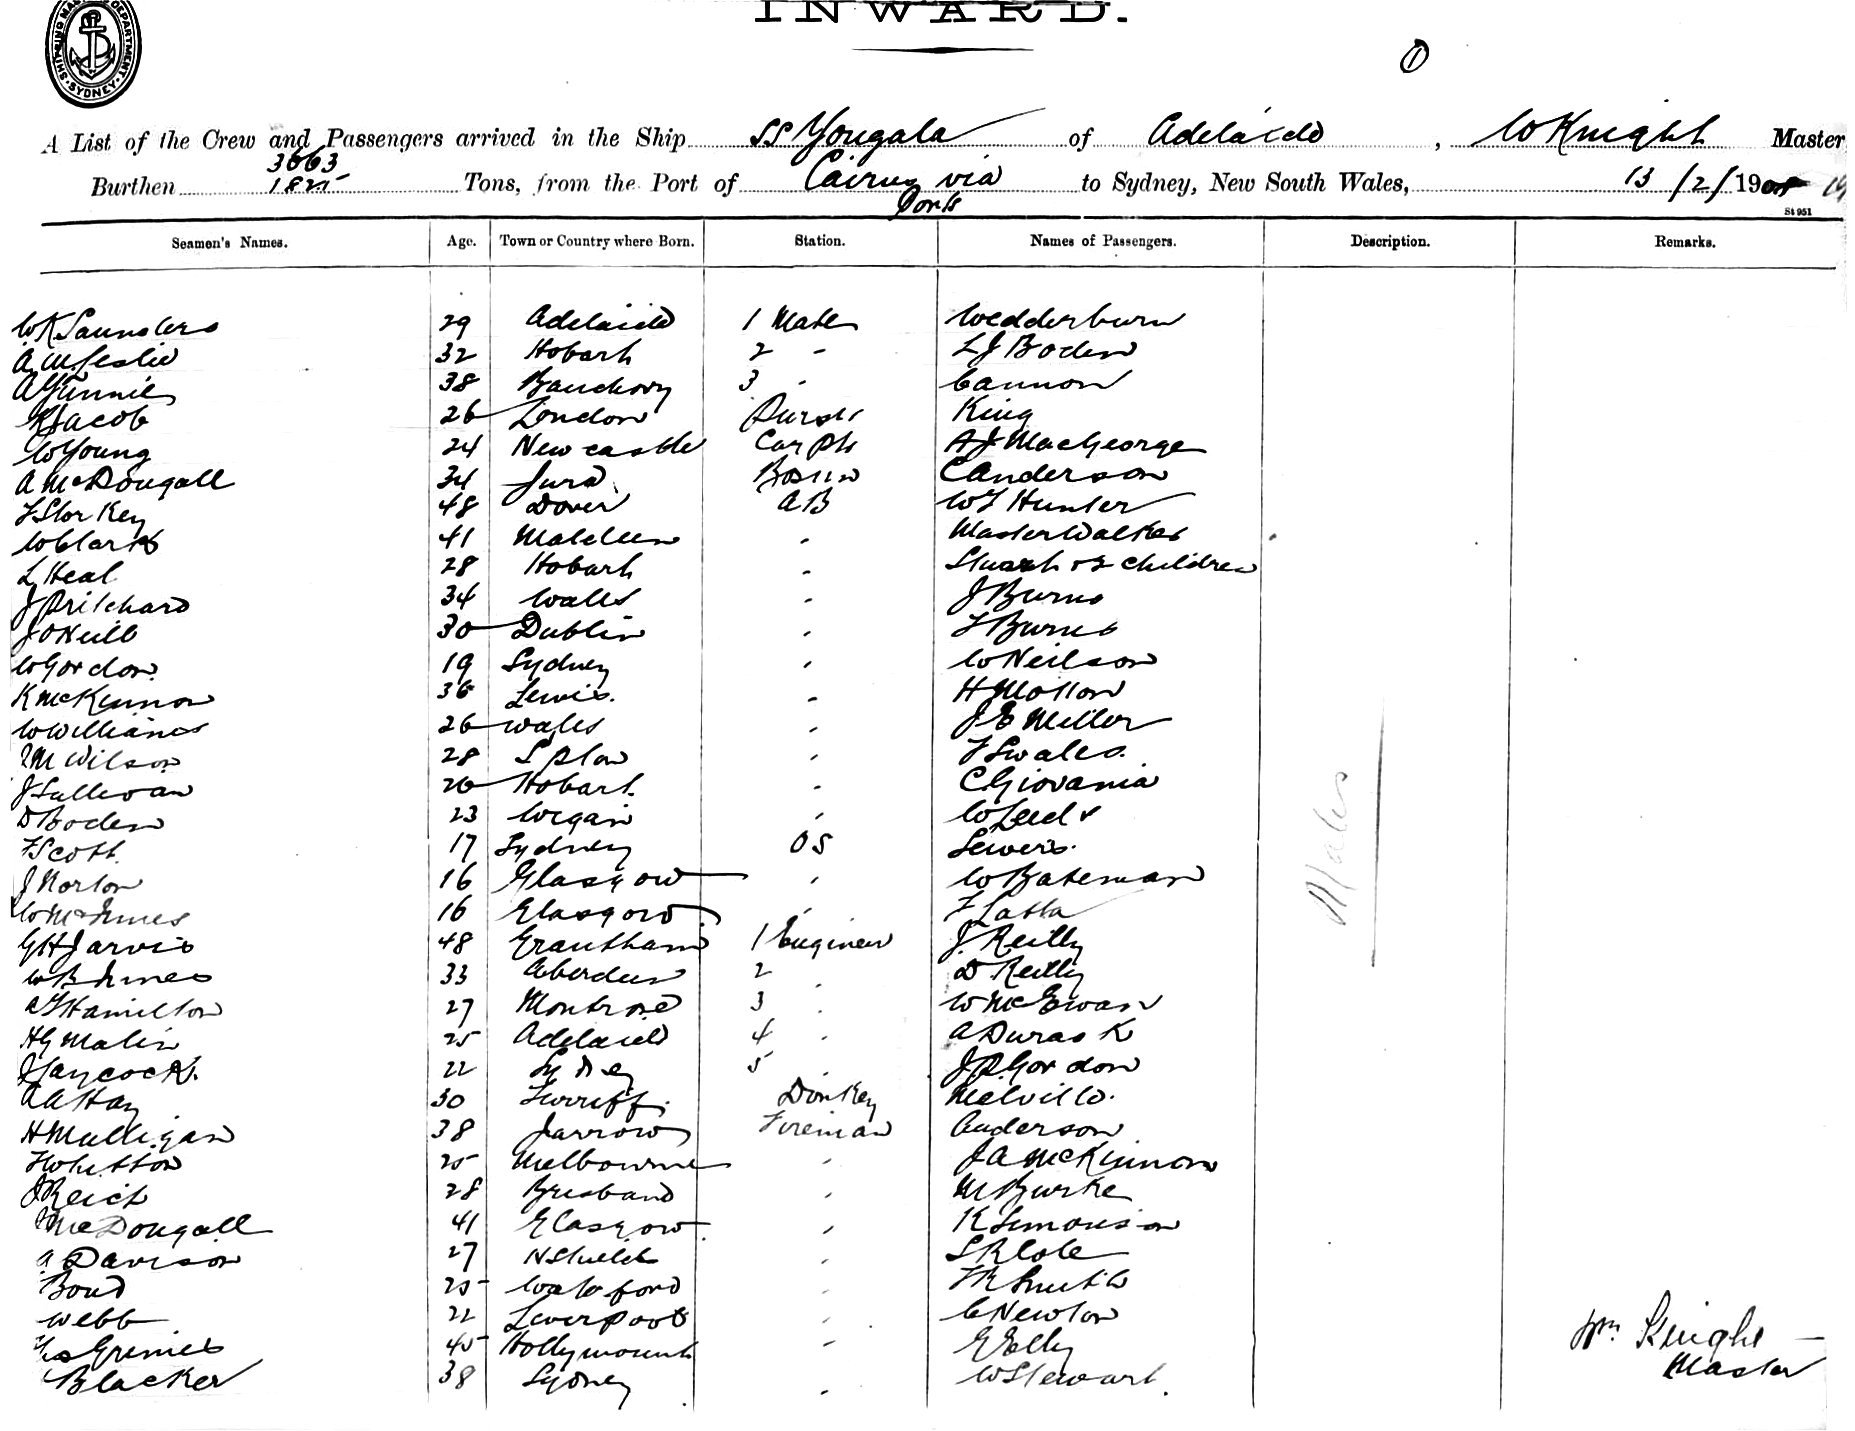 INWARD.
SHIPPING MASTER'S DEPARTMENT SYDNEY
1
A List of the Crew and Passengers arrived in the Ship SS Yongala of Adelaide, W Knight Master
3663
Burthen 1825 Tons, from the Port of Cairns via to Sydney, New South Wales, 13/2/190
Ports
St 951
Seamen's Names. Age. Town or Country where Born. Station. Names of Passengers. Description. Remarks.
W K Saunders 29 Adelaide 1 Mate Wedderburn
A M Leslie 32 Hobart 2 " L J Boden
A Finnie 38 Banchory 3 " Cannon
Jacob 26 London Purser King
W Young 24 Newcastle Carptr A J MacGeorge
A McDougall 34 Jura Bosun C Anderson
F Storkey 48 Dover AB W F Hunter
W Clark 41 Malden " Master Walker
L Heal 28 Hobart " Stuart & 2 children
J Pritchard 34 Wales " J Burns
J O'Neill 30 Dublin " F Burns
W Gordon 19 Sydney " W Neilson
K McKinnon 36 Lewis " H Motton
W Williams 26 Wales " J E Miller
M Wilson 28 " F Swales
J Sullivan 26 Hobart " C Giovania
D Boden 23 Wigan "
F Scott 17 Sydney OS Sewers
J Norton 16 Glasgow " W Bateman
W McInnes 16 Glasgow " F Latta
G H Jarvis 48 Grantham 1 Engineer J. Reilly
W B Innes 33 Aberdeen 2 " D Reilly
A F Hamilton 27 Montrose 3 " W McEwan
H G Malin 25 Adelaide 4 " A Durack
J Laycock 22 Sydney 5 " J P Gordon
A A Hay 30 Turriff Donkey Melville
H Mulligan 38 Jarrow Fireman Anderson
F Whitton 25 Melbourne " J A McKinnon
J Reich 28 Brisbane " M Burke
McDougall 41 Glasgow " K Simonson
A Davison 27 N Shields " S R Cole
Bond 25 Waterford " F R Smith
Webb 22 Liverpool " C Newton
Grimes 45 Hollymount " E Elly
Blacker 38 Sydney " W Stewart
Males
Wm Knight
Master